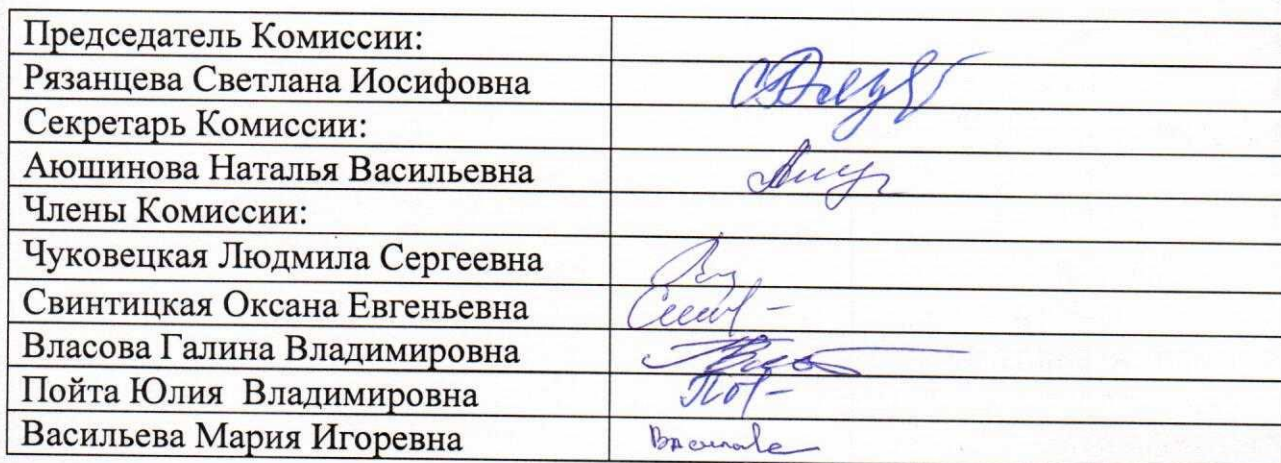 Председатель Комиссии:
Рязанцева Светлана Иосифовна
Секретарь Комиссии:
Аюшинова Наталья Васильевна
Члены Комиссии:
Чуковецкая Людмила Сергеевна
Свинтицкая Оксана Евгеньевна
Власова Галина Владимировна
Пойта Юлия Владимировна
Васильева Мария Игоревна